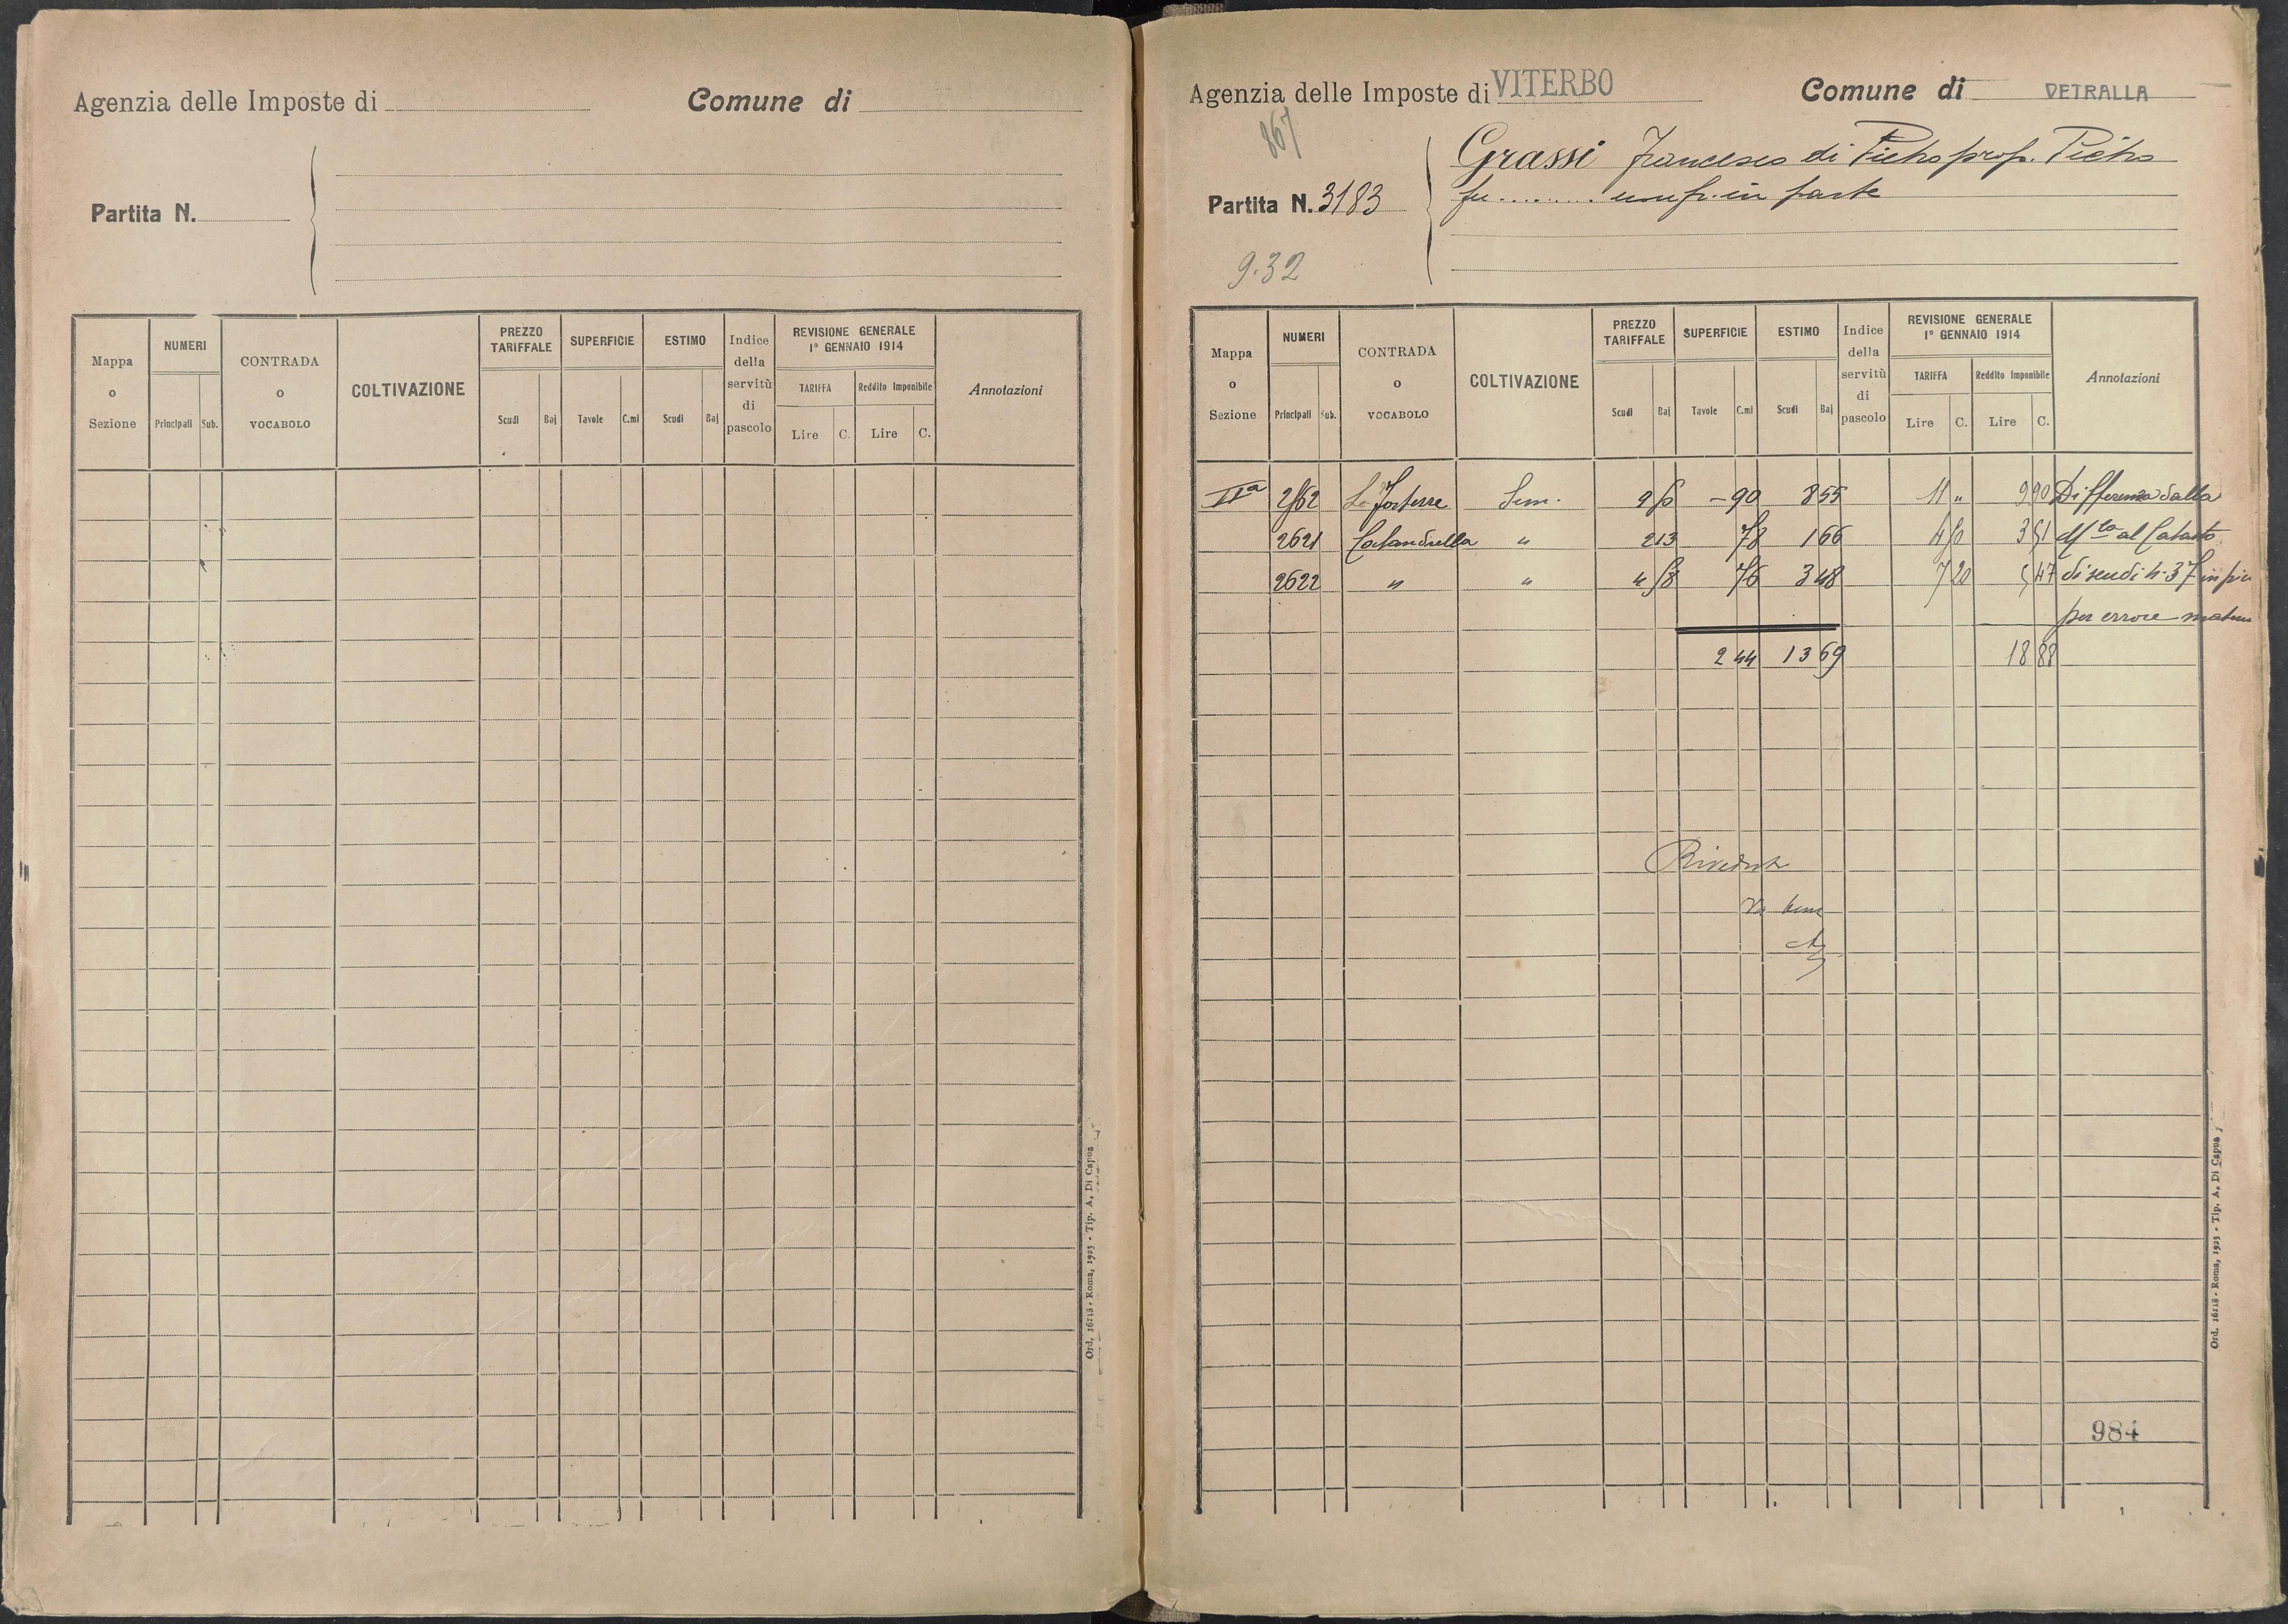 Agenzia delle Imposte di
Comune di
Partita N.
Mappa o Sezione
NUMERI
Principali
Sub.
CONTRADA o VOCABOLO
COLTIVAZIONE
PREZZO TARIFFALE
Scudi
Baj
SUPERFICIE
Tavole
C.mi
ESTIMO
Scudi
Baj
Indice della servitù di pascolo
REVISIONE GENERALE
1° GENNAIO 1914
TARIFFA
Reddito Imponibile
Lire
C.
Lire
C.
Annotazioni
Ord. 16118 - Roma, 1923 - Tip. A. Di Capua
Agenzia delle Imposte di VITERBO
Comune di VETRALLA
867
Grassi Francesco di Pietro prop. Pietro
fu ......... usufr. in parte
Partita N. 3183
9.32
Mappa o Sezione
NUMERI
Principali
Sub.
CONTRADA o VOCABOLO
COLTIVAZIONE
PREZZO TARIFFALE
Scudi
Baj
SUPERFICIE
Tavole
C.mi
ESTIMO
Scudi
Baj
Indice della servitù di pascolo
REVISIONE GENERALE
1° GENNAIO 1914
TARIFFA
Reddito Imponibile
Lire
C.
Lire
C.
Annotazioni
IIa Sem. 9 50 - 90 8 55 11 " 9 90 Differenza dalla
2621 " 2 13 78 1 66 4 50 3 51 al Catasto
2622 " " 4 58 76 3 48 7 20 5 47 di scudi in più
per errore
2 44 13 69 18 88
Riveduta
Va bene
984
Ord. 16118 - Roma, 1923 - Tip. A. Di Capua